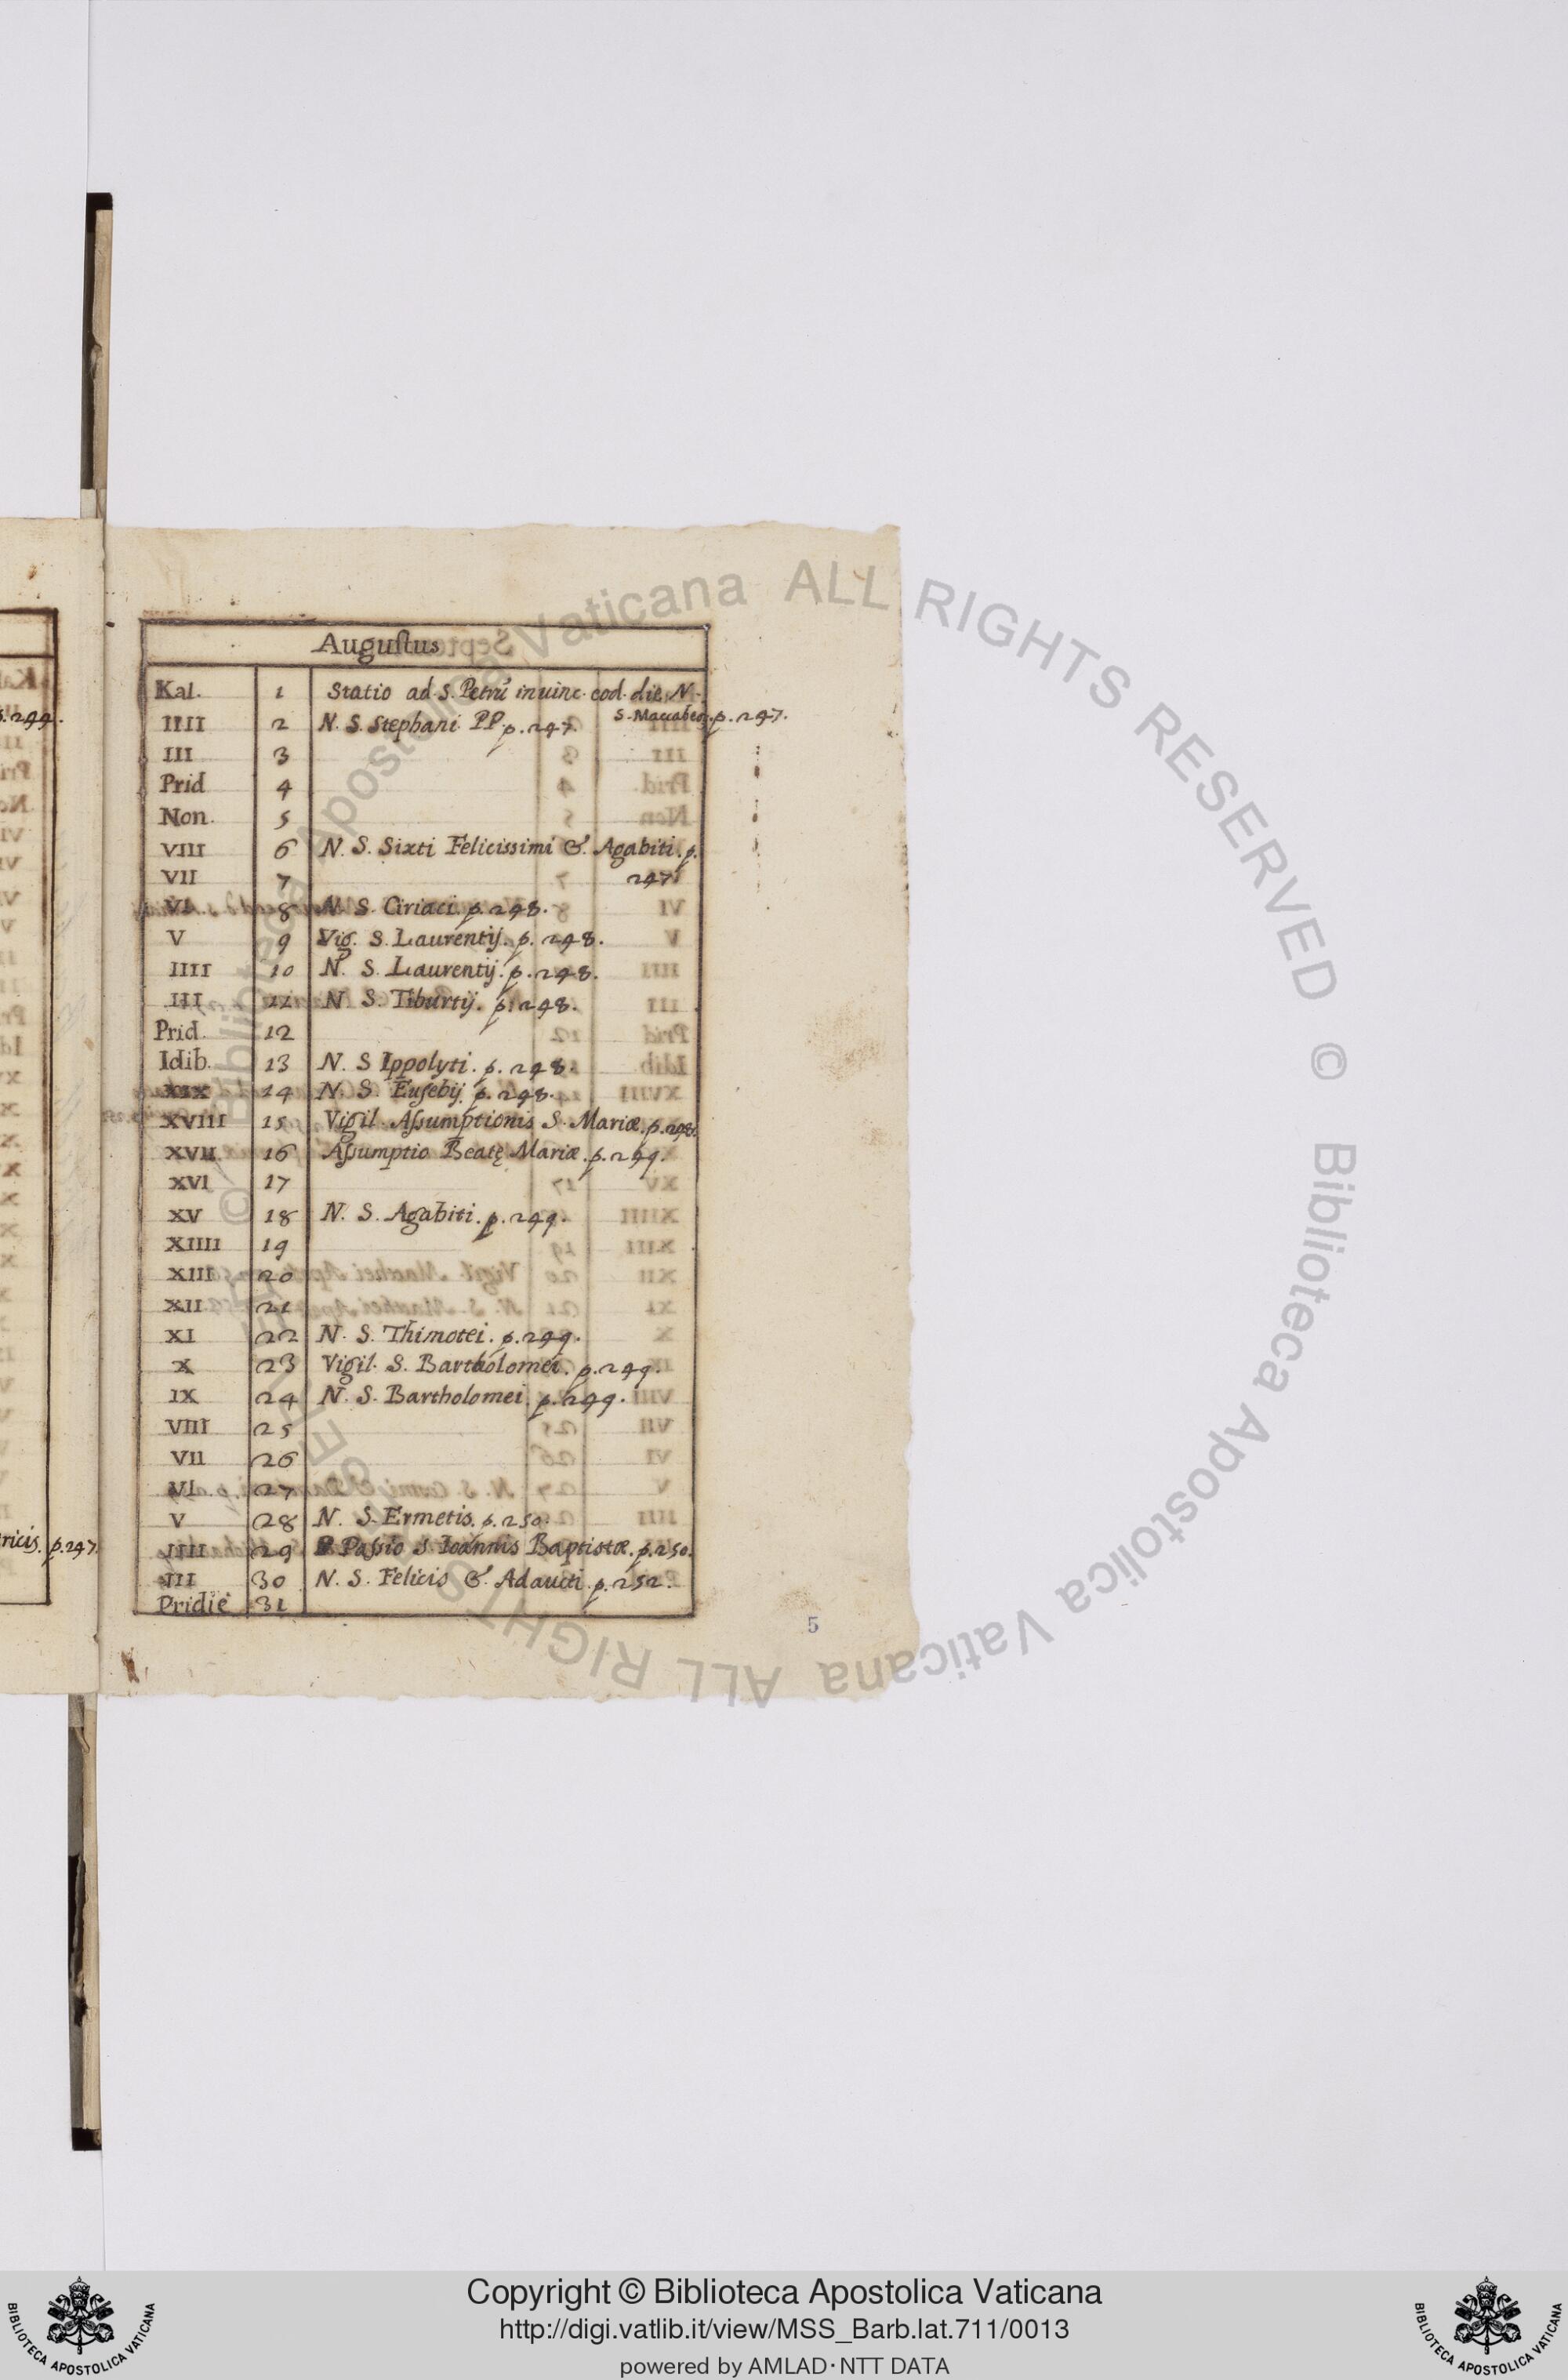 Auguſtus
Kal. 1 Statio ad. S. Petrũ in uinc. eod. die. N.
IIII 2 N. S. Stephani. PP. p. 247. S. Maccabeoꝝ. p. 247.
III 3
Prid 4
Non. 5
VIII 6 N. S. Sixti Felicissimi & Agabiti. p.
VII 7 247
VI 8 N. S. Ciriaci. p. 248.
V 9 Vig. S. Laurentij. p. 248.
IIII 10 N. S. Laurentij. p. 248.
III 11 N. S. Tiburtij. p. 248.
Prid. 12
Idib. 13 N. S Ippolyti. p. 248.
XIX 14 N. S. Euſebij. p. 248.
XVIII 15 Vigil. Aſsumptionis S. Mariæ. p. 248.
XVII 16 Aſsumptio Beatę Mariæ. p. 249.
XVI 17
XV 18 N. S. Agabiti. p. 249.
XIIII 19
XIII 20
XII 21
XI 22 N. S. Thimotei. p. 249.
X 23 Vigil. S. Bartholomei. p. 249.
IX 24 N. S. Bartholomei. p. 249.
VIII 25
VII 26
VI 27
V 28 N. S. Ermetis. p. 250.
IIII 29 Paſsio S. Ioannis Baptistæ. p. 250.
III 30 N. S. Felicis & Adaucti. p. 252.
Pridie 31
5
p. 249.
ricis. p. 247.
© Biblioteca Apostolica Vaticana ALL RIGHTS RESERVED © Biblioteca Apostolica Vaticana ALL RIGHTS RESERVED
BIBLIOTECA APOSTOLICA VATICANA
Copyright © Biblioteca Apostolica Vaticana
http://digi.vatlib.it/view/MSS_Barb.lat.711/0013
powered by AMLAD･NTT DATA
BIBLIOTECA APOSTOLICA VATICANA